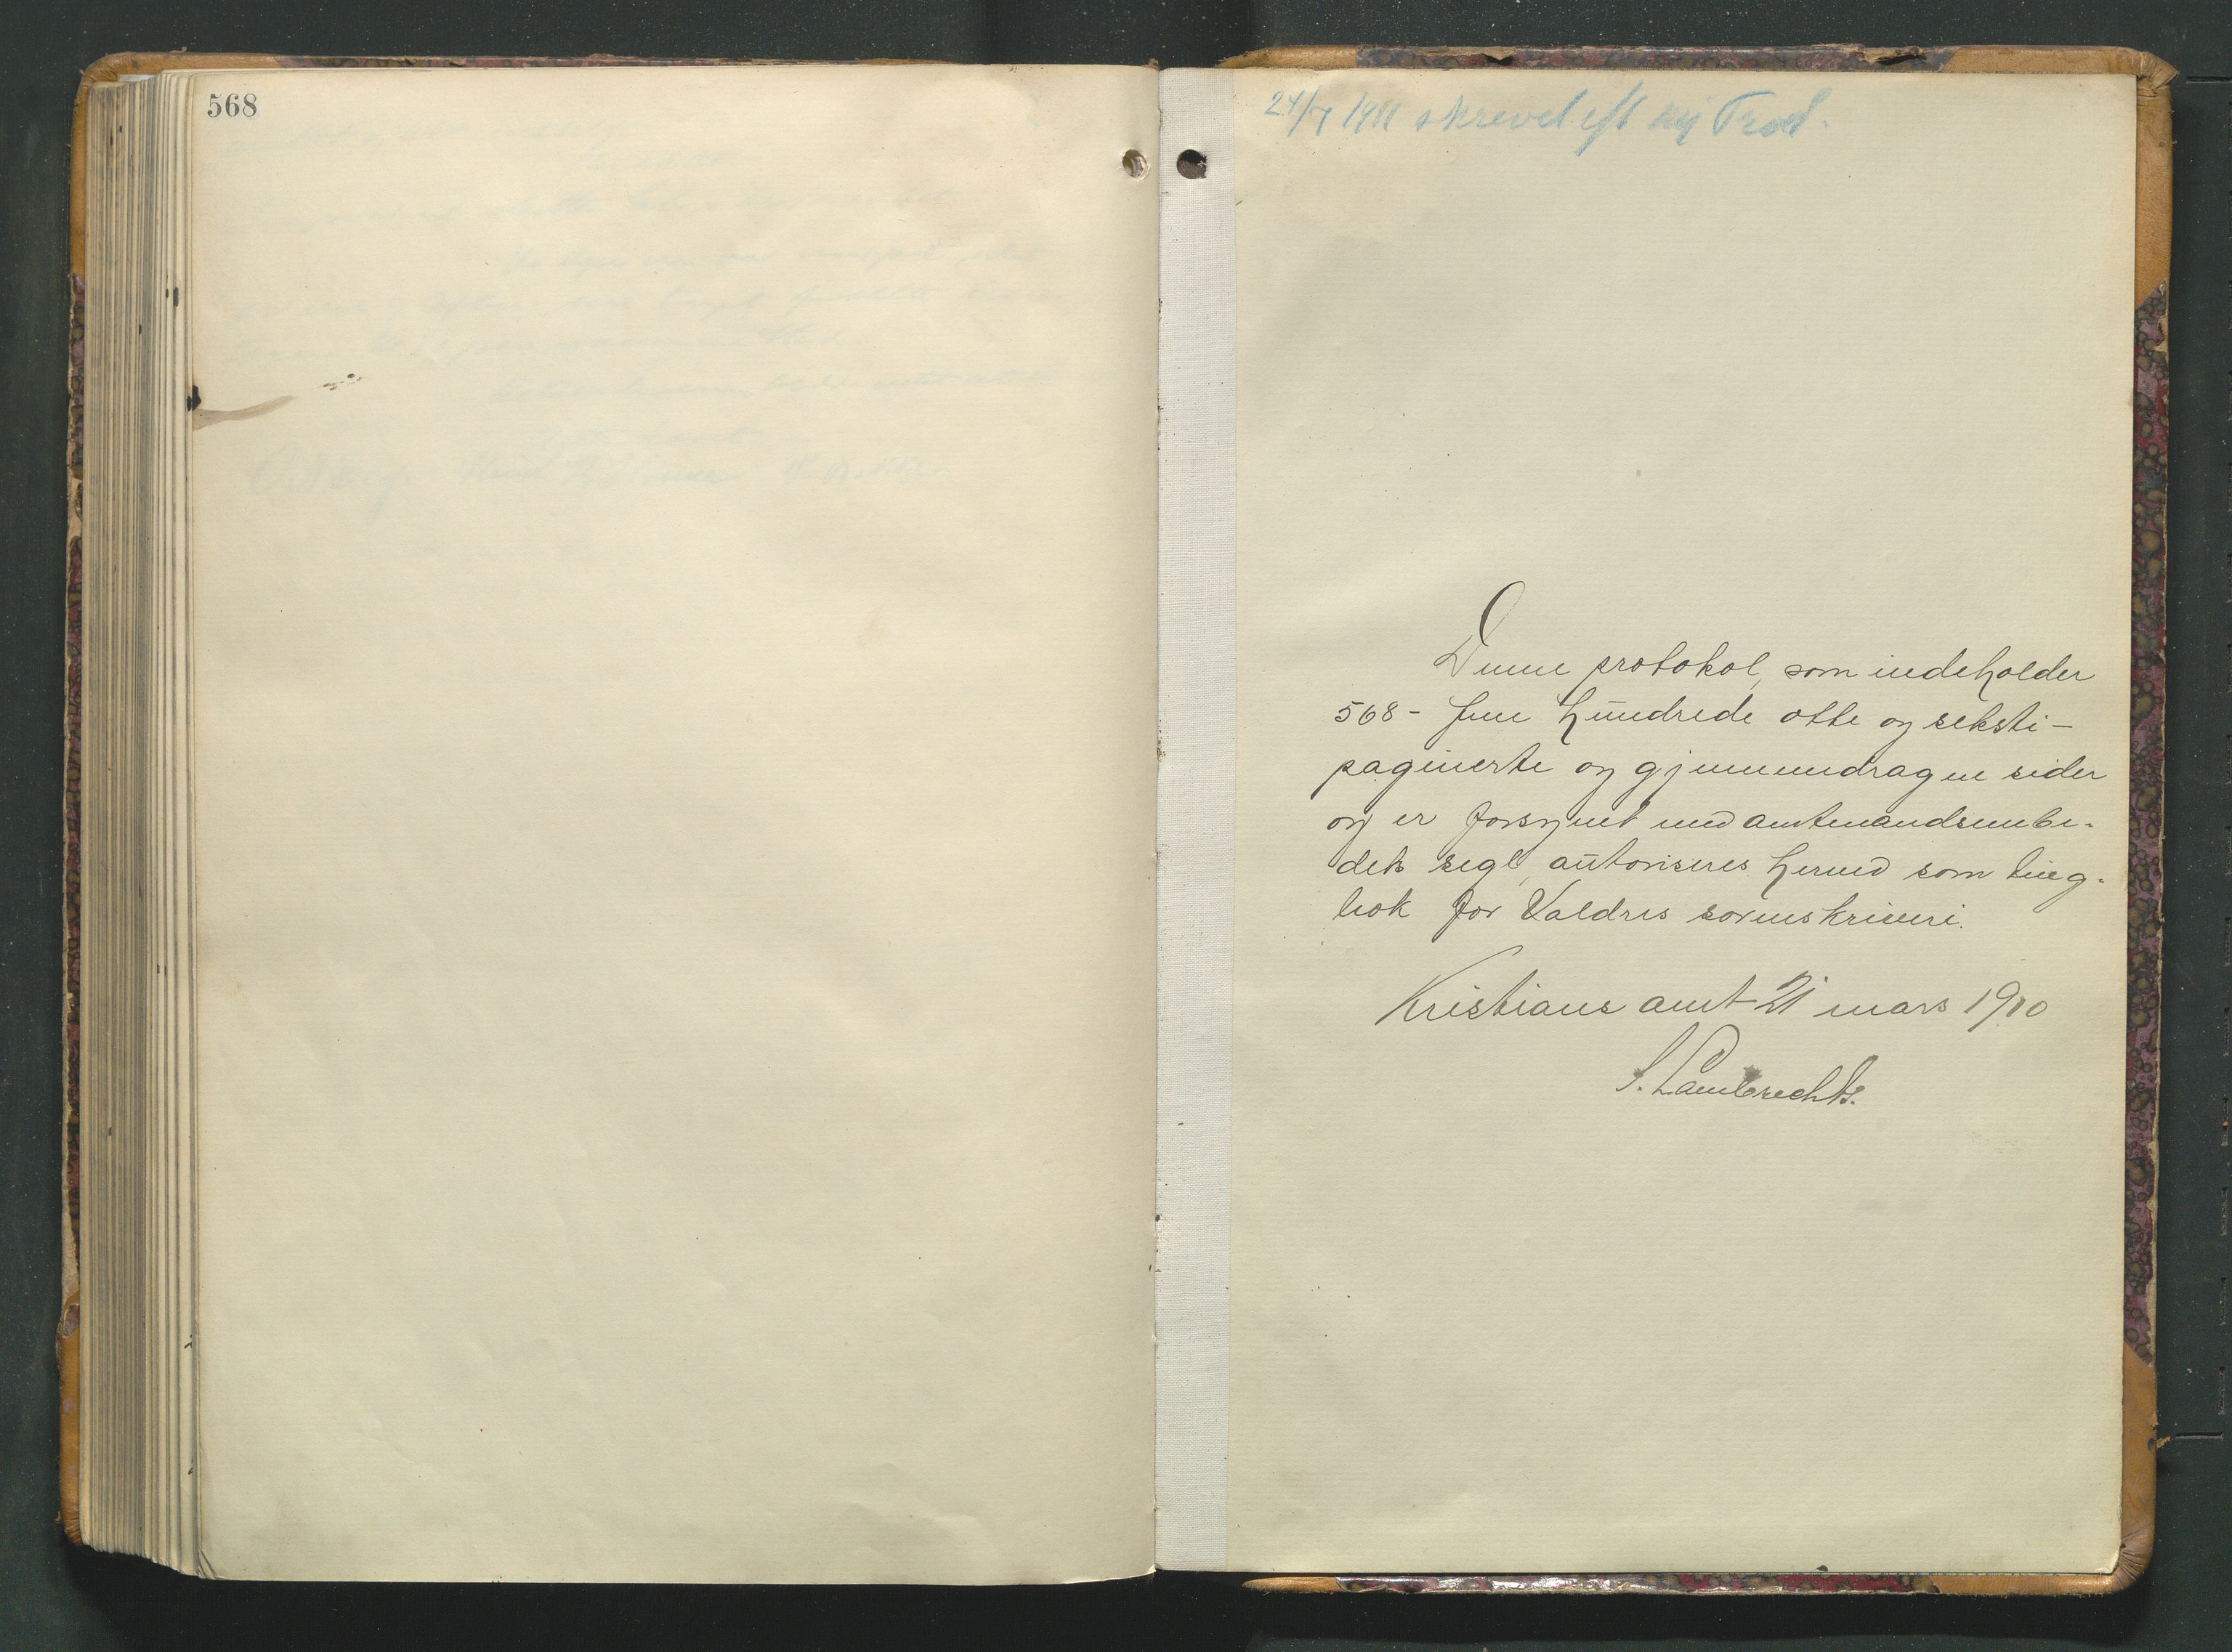 568
24/7 1911 skrevet eft ny Prot.
Denne protokol, som indeholder
568 - fem hundrede otte og seksti -
paginerte og gjennemdragne sider
og er forsynet med amtmandsembe-
dets segl, autoriseres herved som ting-
bok for Valdres sorenskriveri.
Kristians amt 21 mars 1910
S. Lambrechts.